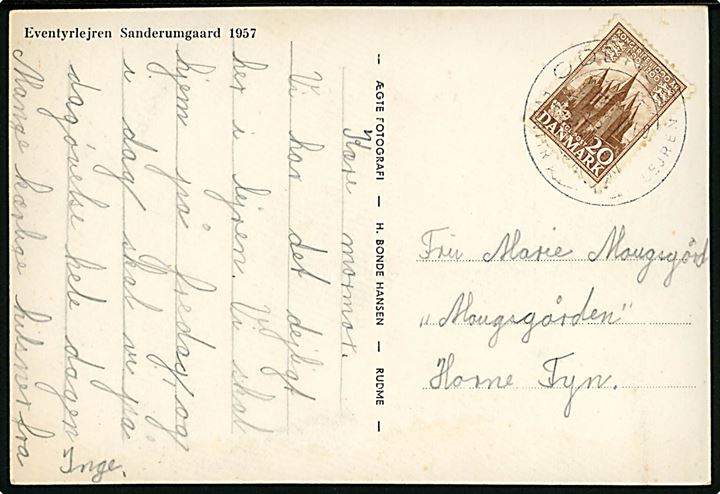 Eventyrlejren Sanderumgaard 1957
Kære mormor.
Vi har det dejligt
her i lejren. Vi skal
hjem på fredag, og
i dag skal vi på
dagøvelse hele dagen
Mange kærlige hilsner fra
Inge.
— ÆGTE FOTOGRAFI — H. BONDE HANSEN — RUDME —
KONGERIGET I 1000 ÅR
20
DANMARK
LEJREN
Fru Marie Mougsgård
"Mougsgården"
Horne Fyn.